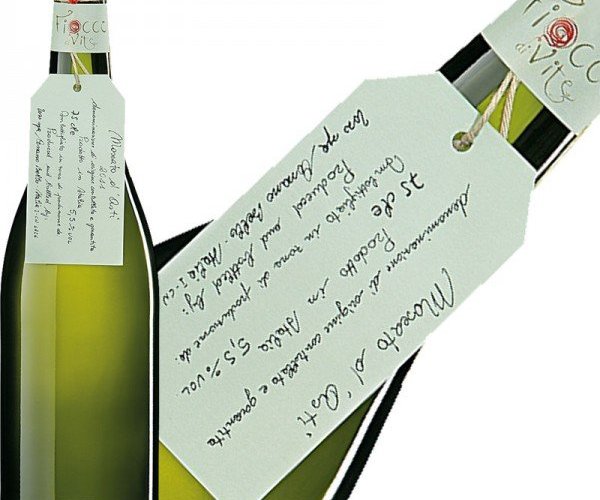 Fiocco
di Vite
Moscato d'Asti
2011
denominazione di origine controllata e garantita
Prodotto in Italia
75 cl e 5,5 % VOL
Imbottigliato in zona di produzione da:
Produced and Bottled By:
Italia I-CN
Fiocco
di Vite
Moscato d'Asti
denominazione di origine controllata e garantita
Prodotto in Italia
75 cl e 5,5 % VOL
Imbottigliato in zona di produzione da:
Produced and Bottled By:
Italia I-CN